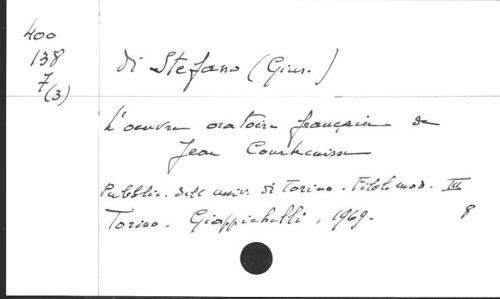 400
138
7
(3)
di Stefano (Gius.)
L'oeuvre oratoire française de
Jean Courtecuisse
Pubblic. dell univ. di Torino. Filol. mod. III
Torino. Giappichelli, 1969. 8